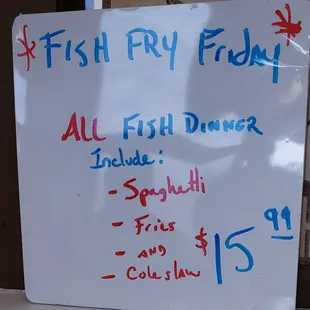 * FISH FRY Friday *
ALL FISH DINNER
Include:
- Spaghetti
- Fries
- AND
- Coleslaw
$15.99